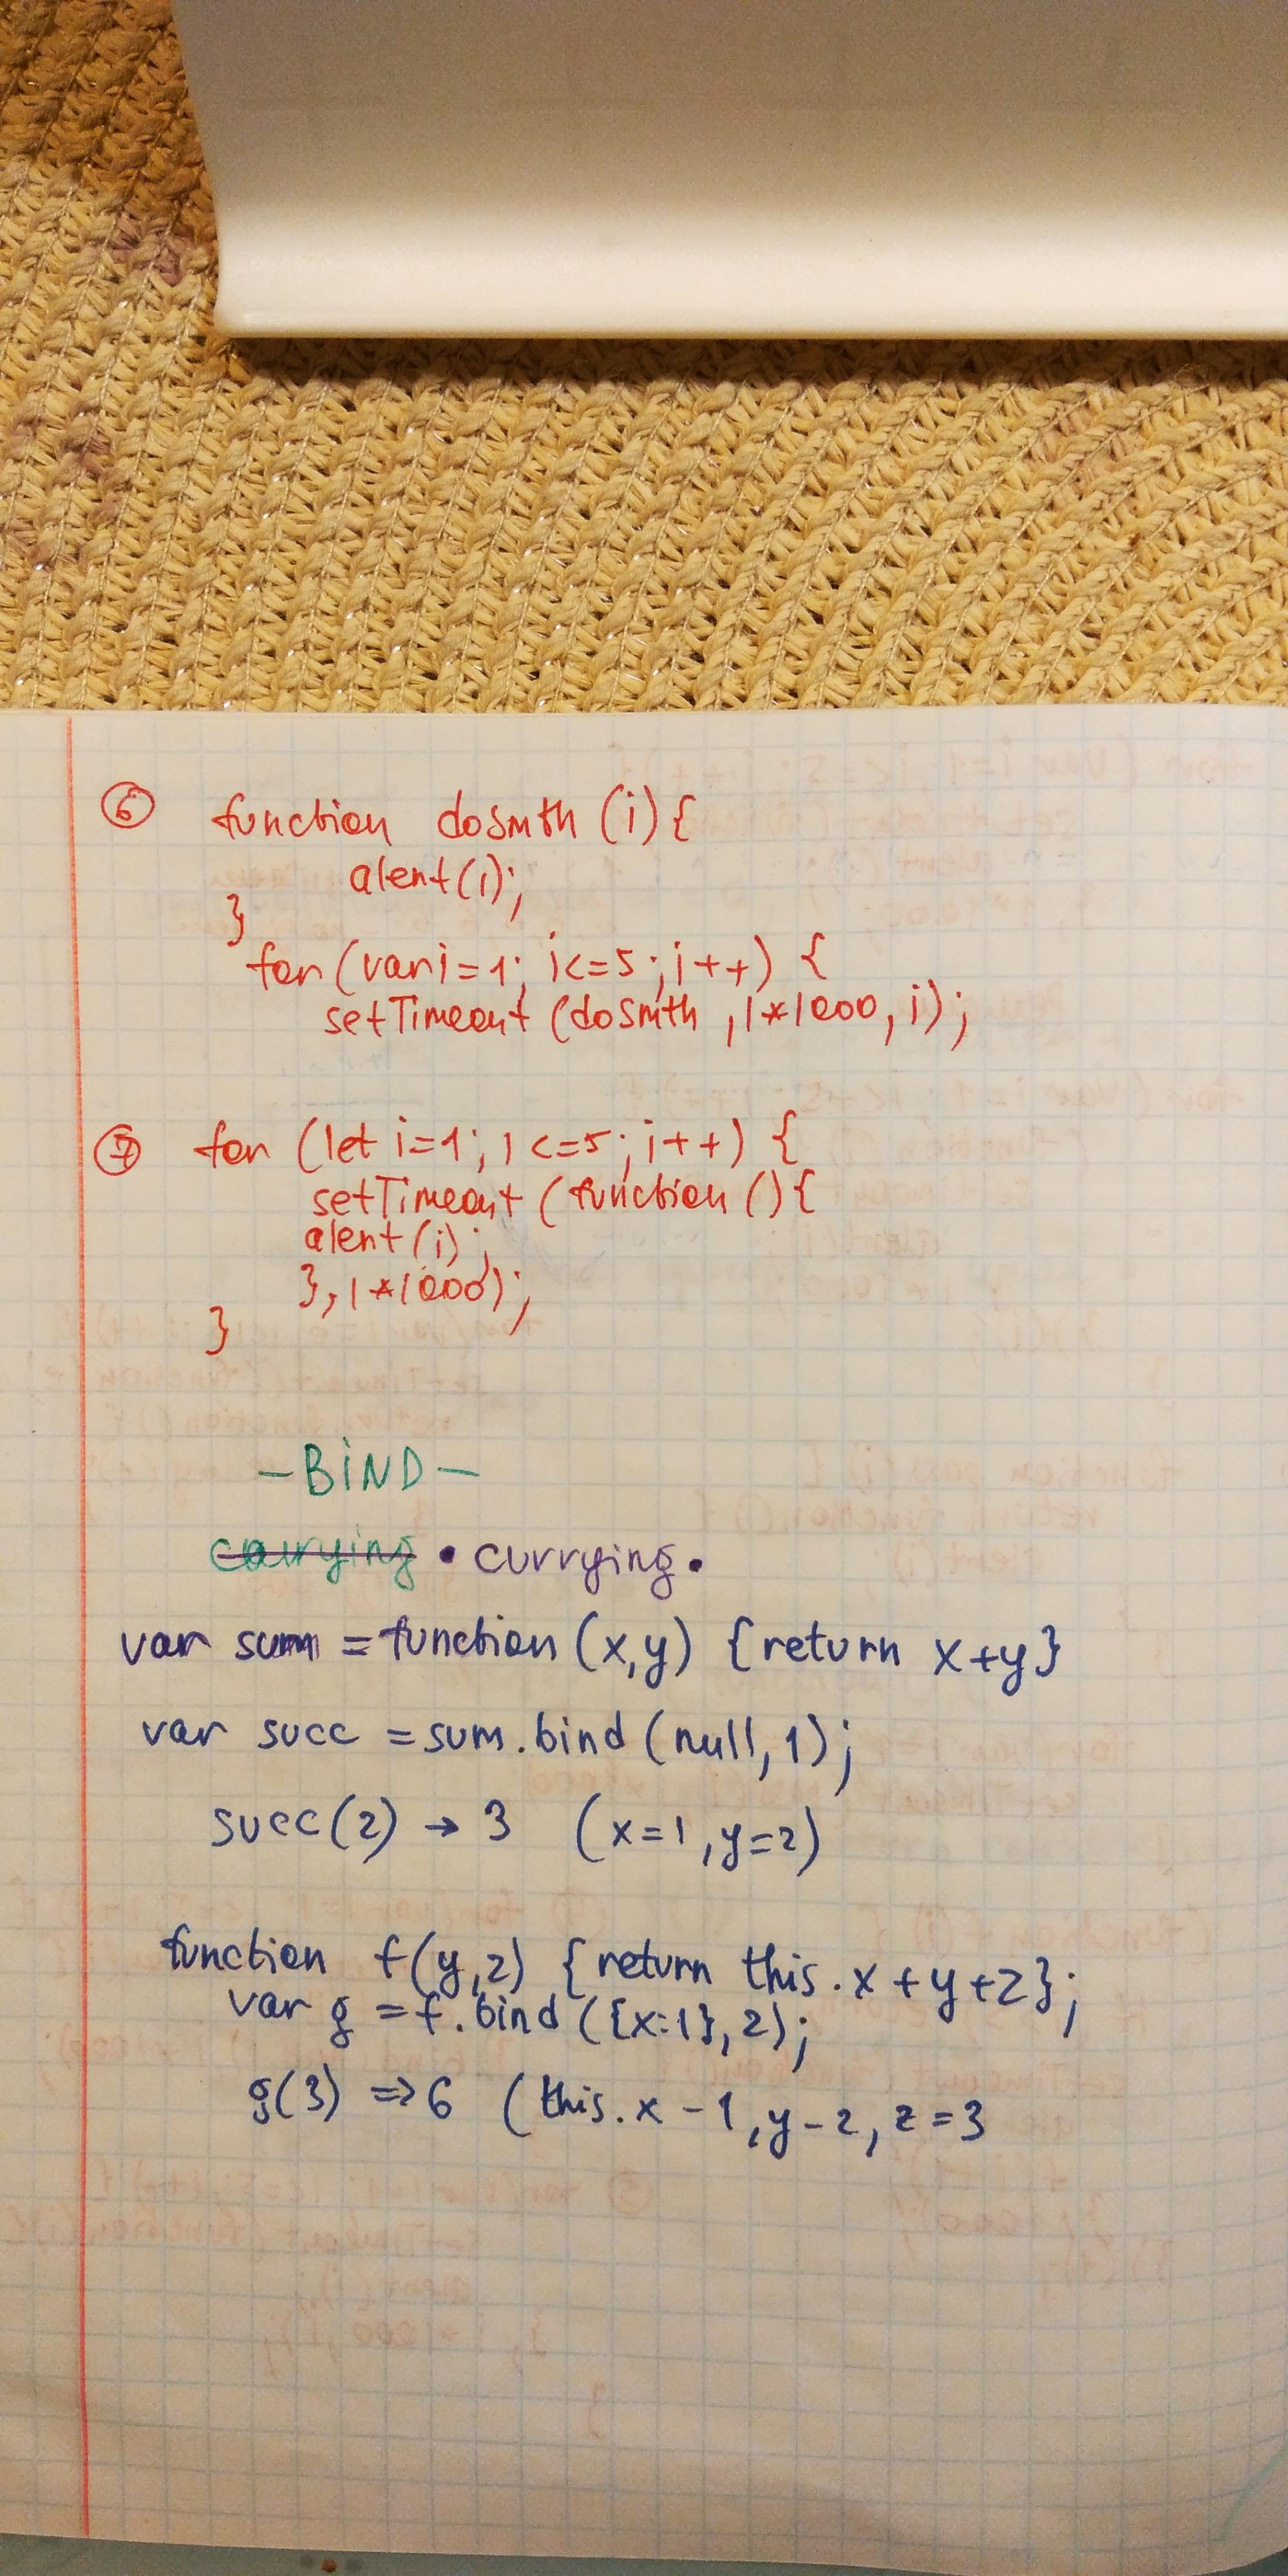 ⑥ function doSmth (i) {
alert(i);
}
for (var i=1; i<=5; i++) {
setTimeout (doSmth, i*1000, i);
⑦ for (let i=1; i<=5; i++) {
setTimeout (function () {
alert(i);
}, i*1000);
}
—BIND—
carrying • currying •
var sum = function (x,y) {return x+y}
var succ = sum.bind (null, 1);
succ(2) → 3 (x=1, y=2)
function f(y,z) {return this.x+y+z};
var g = f.bind ({x:1}, 2);
g(3) => 6 (this.x - 1, y - 2, z = 3